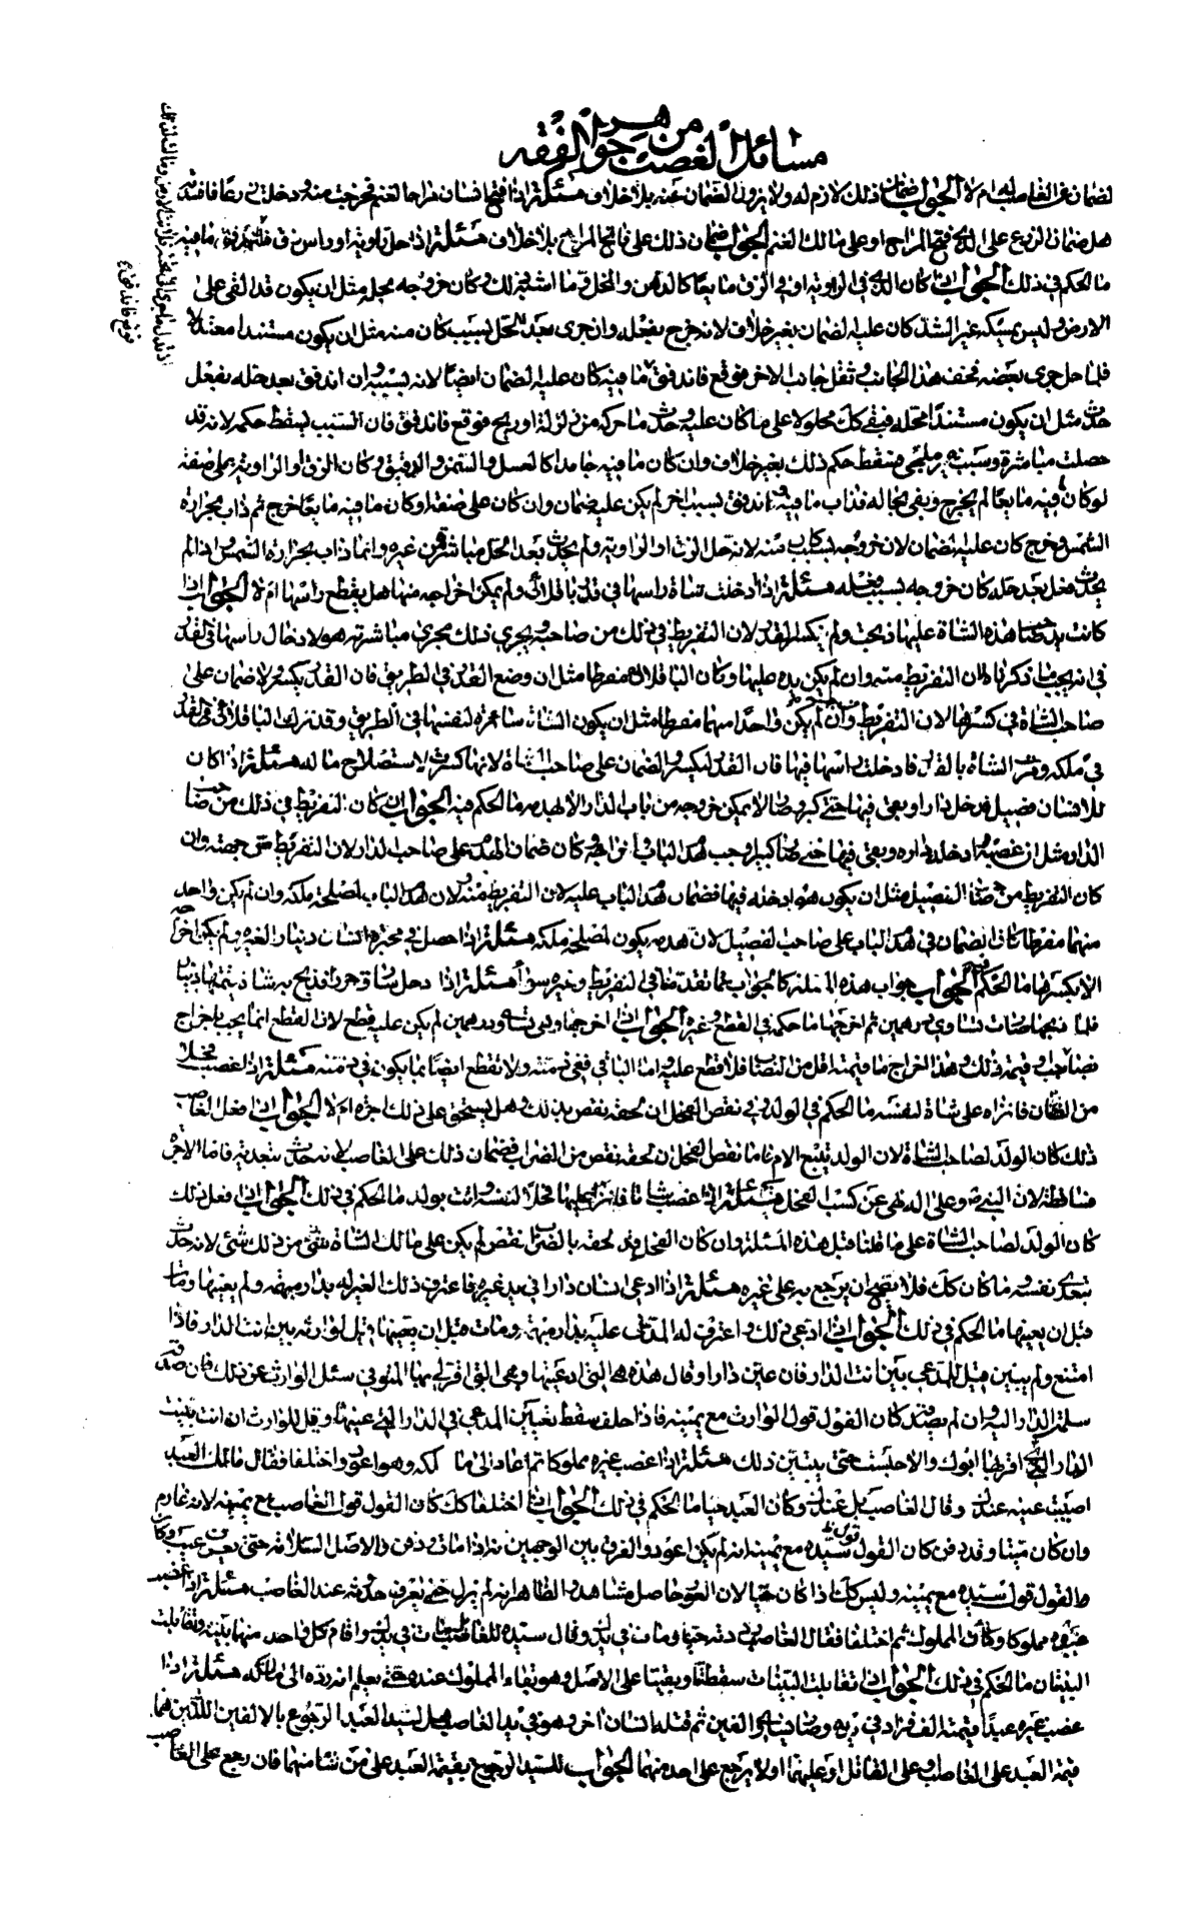 مسائل الغصب من جواهر الفقه
الضمان عن الغاصب له ام لا الجواب ضمان ذلك لازم له ولا يزول الضمان عنه بلا خلاف مسئلة اذا فتح انسان مراحا لغنم فخرجت منه ودخلت زرعا فافسدته
هل ضمان الزرع على الذي فتح المراح او على مالك الغنم الجواب ضمان ذلك على فاتح المراح بلا خلاف مسئلة اذا حل زاوية او راس زق فاندفق ما فيه
ما الحكم في ذلك الجواب ان كان الذي في الراوية او في الزق مايعا كالدهن والخل وما اشبه ذلك وكان خروجه بحله مثل ان يكون قد القي على
الارض وليس يمسكه غير الشد كان عليه الضمان بغير خلاف لانه خرج بفعله وان جرى بعد الحل بسبب كان منه مثل ان يكون مستندا معتدلا
فلما حل جرى بعضه فخف هذا الجانب وثقل جانب الاخر فوقع فاندفق ما فيه كان عليه الضمان ايضا لانه بسببه وان اندفق بعد حله بفعل
حدث مثل ان يكون مستندا فحله فبقي كك محلولا على ما كان عليه وحدث ما حركه من زلزلة او ريح فوقع فاندفق فان السبب يسقط حكمه لانه قد
حصلت مباشرة وسبب غير ملجئ فسقط حكم ذلك بغير خلاف وان كان ما فيه جامدا كالعسل والسمن والدقيق وكان الزق او الراوية على صفة
لو كان فيه مايعا لم يخرج وبقي بحاله فذاب ما فيه واندفق بسبب اخر لم يكن عليه ضمان وان كان على صفة لو كان ما فيه مايعا خرج ثم ذاب بحرارة
الشمس وخرج كان عليه الضمان لان خروجه بسبب كان منه لانه حل الزق او الراوية ولم يحدث بعد الحل مباشرة من غيره وانما ذاب بحرارة الشمس اذا لم
يحدث فعل بعد حله كان خروجه بسبب فعله مسئلة اذا ادخلت شاة راسها في قدر باقلاني ولم يمكن اخراجه منها هل يقطع راسها ام لا الجواب اذا
كانت يد صاحب هذه الشاة عليها ذبحت ولم يكسر القدر لان التفريط في ذلك من صاحبه ويجري ذلك مجرى مباشرته هو لادخال راسها في القدر
في انه يجب ما ذكرناه لان التفريط منه وان لم يكن يده عليها وكان الباقلاني مفرطا مثل ان وضع القدر في الطريق فان القدر يكسر ولا ضمان على
صاحب الشاة في كسرها لان التفريط وان لم يكن واحدا منهما مفرطا مثل ان يكون الشاة سائرة لنفسها في الطريق وقد ترك الباقلاني القدر
في ملكه ومرت الشاة بالقدر فادخلت راسها فيها فان القدر تكسر والضمان على صاحب الشاة لانها كسرت لاستصلاح ماله مسئلة اذا كان
للانسان فصيل فدخل دار او بقي فيها حتى كبر وصار لا يمكن خروجه من باب الدار الا بهدمه ما الحكم فيه الجواب ان كان التفريط في ذلك من صاحب
الدار مثل ان غصبه وادخله داره وبقي فيها حتى صار كبيرا وجب هدم الباب واخراجه وكان ضمان الهدم على صاحب الدار لان التفريط من جهته وان
كان التفريط من صاحب الفصيل مثل ان يكون هو ادخله فيها فضمان هدم الباب عليه لان التفريط منه ولان هدم الباب لمصلحة ملكه وان لم يكن واحد
منهما مفرطا كان الضمان في هدم الباب على صاحب الفصيل لان هدمه يكون لمصلحة ملكه مسئلة اذا حصل في محبرة انسان دينار لغيره ولم يمكن اخراجه
الا بكسرها ما الحكم فيه الجواب جواب هذه المسئلة كالجواب عما تقدمها في التفريط وغيره سواء مسئلة
فلما ذبحها صارت تساوي درهمين ثم اخرجها ما حكمه في القطع وغيره الجواب اذا اخرجها وهي تساوي درهمين لم يكن عليه قطع لان القطع انما يجب باخراج
نصاب او قيمة ذلك وهذا اخراج ما قيمته اقل من النصاب فلا قطع عليه واما الباقي ففي ذمته ولا تقطع ايضا بما يكون في ذمته مسئلة اذا غصب فحلا
من الضان فانزاه على شاة لنفسه ما الحكم في الولد وفي نقص الفحل ان لحقه نقص بذلك وهل يستحق على ذلك اجرة ام لا الجواب اذا فعل الغاصب
ذلك كان الولد لصاحب الشاة لان الولد يتبع الام فاما نقص الفحل ان لحقه نقص من الضراب فضمان ذلك على الغاصب لانه حدث بتعديه فاما الاجرة
ساقطة لان النبي صلى الله عليه واله نهى عن كسب الفحل مسئلة اذا غصب شاة فانزى عليها فحلا لنفسه فاتت بولد ما الحكم في ذلك الجواب اذا فعل ذلك
كان الولد لصاحب الشاة على ما قلناه قبل هذه المسئلة وان كان الفحل قد لحقه بالضراب نقص لم يكن على مالك الشاة شيء من ذلك شيء لانه حدث
بتعدي نفسه وما كان كك فلا يصح ان يرجع به على غيره مسئلة اذا ادعى انسان دارا في يد غيره فاعترف ذلك الغير له بدار مبهمة ولم يعينها ومات
قبل ان يعينها ما الحكم في ذلك الجواب اذا ادعى ذلك واعترف له المدعى عليه بدار مبهمة ومات قبل ان يعينها قيل لوارثه بين انت الدار فاذا
امتنع ولم يبين قيل للمدعي بين انت الدار فان عين دارا وقال هذه هي التي ادعيتها وهي التي اقر لي بها المتوفى سئل الوارث عن ذلك فان صدقه
سلمت الدار اليه وان لم يصدقه كان القول قول الوارث مع يمينه فاذا حلف سقط تعيين المدعي في الدار التي عينها وقيل للوارث ان انت بينت
الدار التي اقر بها ابوك والا حبست حتى يتبين ذلك مسئلة اذا غصب غيره مملوكا ثم عاد الى مالكه وهو اعور واختلفا فقال مالك العبد
اصيبت عينه عندك وقال الغاصب بل عندك وكان العبد حيا ما الحكم في ذلك الجواب اذا اختلفا كك كان القول قول الغاصب مع يمينه لانه غارم
وان كان ميتا وقد دفن كان القول قول سيده مع يمينه انه لم يكن اعور والفرق بين الوجهين انه اذا مات ودفن فالاصل السلامة حتى يعرف عيب وكان
القول قول سيده مع يمينه وليس كك اذا كان حيا لان العور حاصل مشاهد والظاهر انه لم يزل حتى يعرف حدثه عند الغاصب مسئلة اذا غصب
غيره مملوكا وكان المملوك ثم اختلفا فقال الغاصب رددته حيا ومات في يدك وقال سيده للغاصب بل مات في يدك واقام كل واحد منهما بينة وتقابلت
البينتان ما الحكم في ذلك الجواب اذا تقابلت البينات سقطتا وبقينا على الاصل وهو بقاء المملوك عنده حتى يعلم انه رده الى مالكه مسئلة اذا
غصب غيره عبدا قيمته الف فزاد في يده وصار يسوي الفين ثم قتله انسان اخر وهو في يد الغاصب هل لسيد العبد الرجوع بالالفين اللذين هما
قيمة العبد على الغاصب او على القاتل او عليهما او لا يرجع على احد منهما الجواب للسيد الرجوع بقيمة العبد على من شاء منهما فان رجع على الغاصب